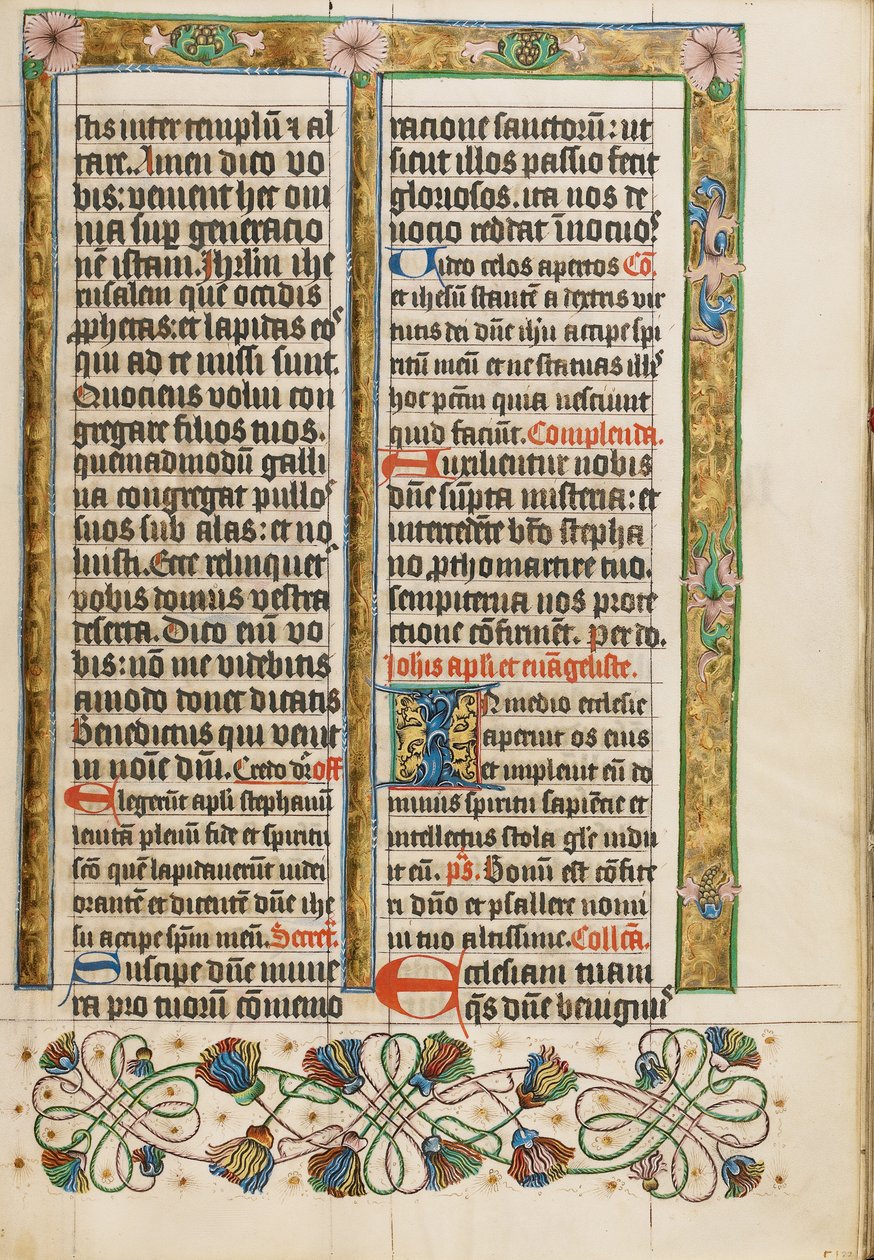 stis inter templū ⁊ al
tare. Amen dico vo
bis: venient hec om
nia sup generacio
nē istam. Jhrlm ihe
rusalem que occidis
ꝓphetas: et lapidas eoˢ
qui ad te missi sunt.
Quociens volui con
gregare filios tuos.
quemadmodū galli
na congregat pulloˢ
suos sub alas: et no
luisti. Ecce relinquetʳ
vobis domus vestra
deserta. Dico eiū vo
bis: nō me videbitis
amodo donec dicatis
Benedictus qui venit
in noīe dnī. Credo dr̄ off
Elegerūt apli stephanū
leuitā plenū fide et spiritu
scō quē lapidauerūt iudei
orantē et dicentē dūe ihe
su accipe spm̄ meū. Secret̄.
Suscipe dūe mune
ra pro tuorū cōmemo
racione sanctorū: ut
sicut illos passio fecit
gloriosos. ita nos de
uocio reddat īnocuoˢ.
Uideo celos apertos Cō.
et ihesū stantē a dextris vir
tutis dei dūe ihū accipe spi
ritū meū et ne statuas illiˢ
hoc pctm̄ quia nesciunt
quid faciūt. Complenda.
Auxilientur nobis
dūe sūpta misteria: et
intercedēte bt̄o stepha
no ꝓthomartire tuo.
sempiterna nos prote
ctione cōfirmēt. Per do.
Johis apli et euāgeliste.
In medio ecclesie
aperuit os eius
et impleuit eū do
minus spiritu sapiēcie et
intellectus stola glīe indu
it eū. pˢ. Bonū est cōfite
ri dūo et psallere nomi
ni tuo altissime. Collcā.
Ecclesiam tuam
q̄s dūe benignuˢ